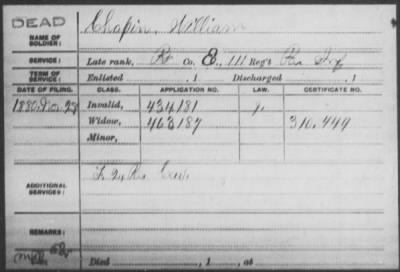 DEAD
NAME OF SOLDIER: Chapin, William
SERVICE: Late rank, Pt Co. E, 111 Reg't Pa Inf
TERM OF SERVICE: Enlisted , 1 Discharged , 1
DATE OF FILING. CLASS. APPLICATION NO. LAW. CERTIFICATE NO.
1880, Nov. 29 Invalid, 434181
Widow, 463187 310,449
Minor,
ADDITIONAL SERVICES: F 2, Pa Cav.
REMARKS:
Died , 1 , at